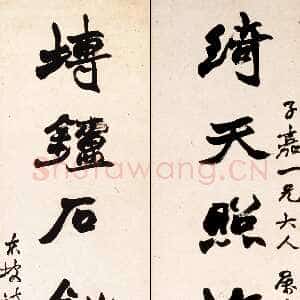 子嘉一兄大人屬
綺天照
塼鑪石
东坡
Shufawang.CN